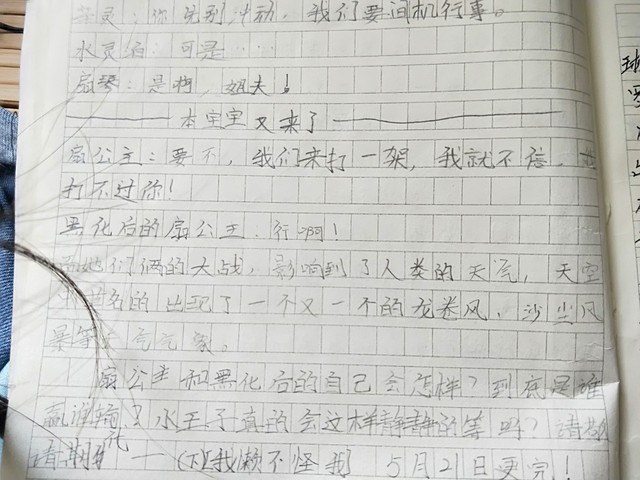 灵：你先别冲动，我们要伺机行事。
水灵泊：可是……
扇琴：是啊，姐夫！
———本宝宝又来了———
扇公主：要不，我们来打一架，我就不信，
打不过你！
黑化后的扇公主：行啊！
她们俩的大战，影响到了人类的天气，天空
名的出现了一个又一个的龙卷风、沙尘风
暴等天气气象。
扇公主和黑化后的自己会怎样？到底是谁
赢谁输？水王子真的会这样静静的等吗？请敬
请期待——（下）（我懒不怪我） 5月21日更完！